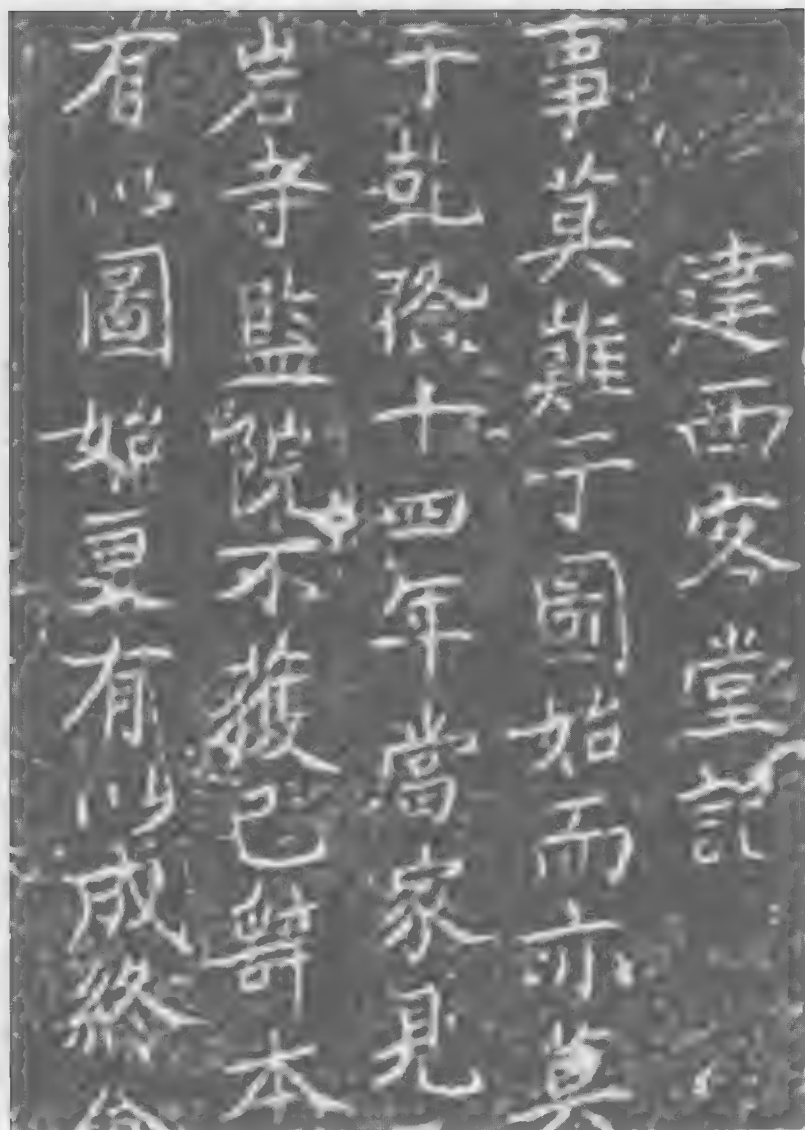 建西客堂記
事莫難于圖始而亦莫
于乾隆十四年當家見
岩寺監院不獲已募本
有以圖始更有以成終